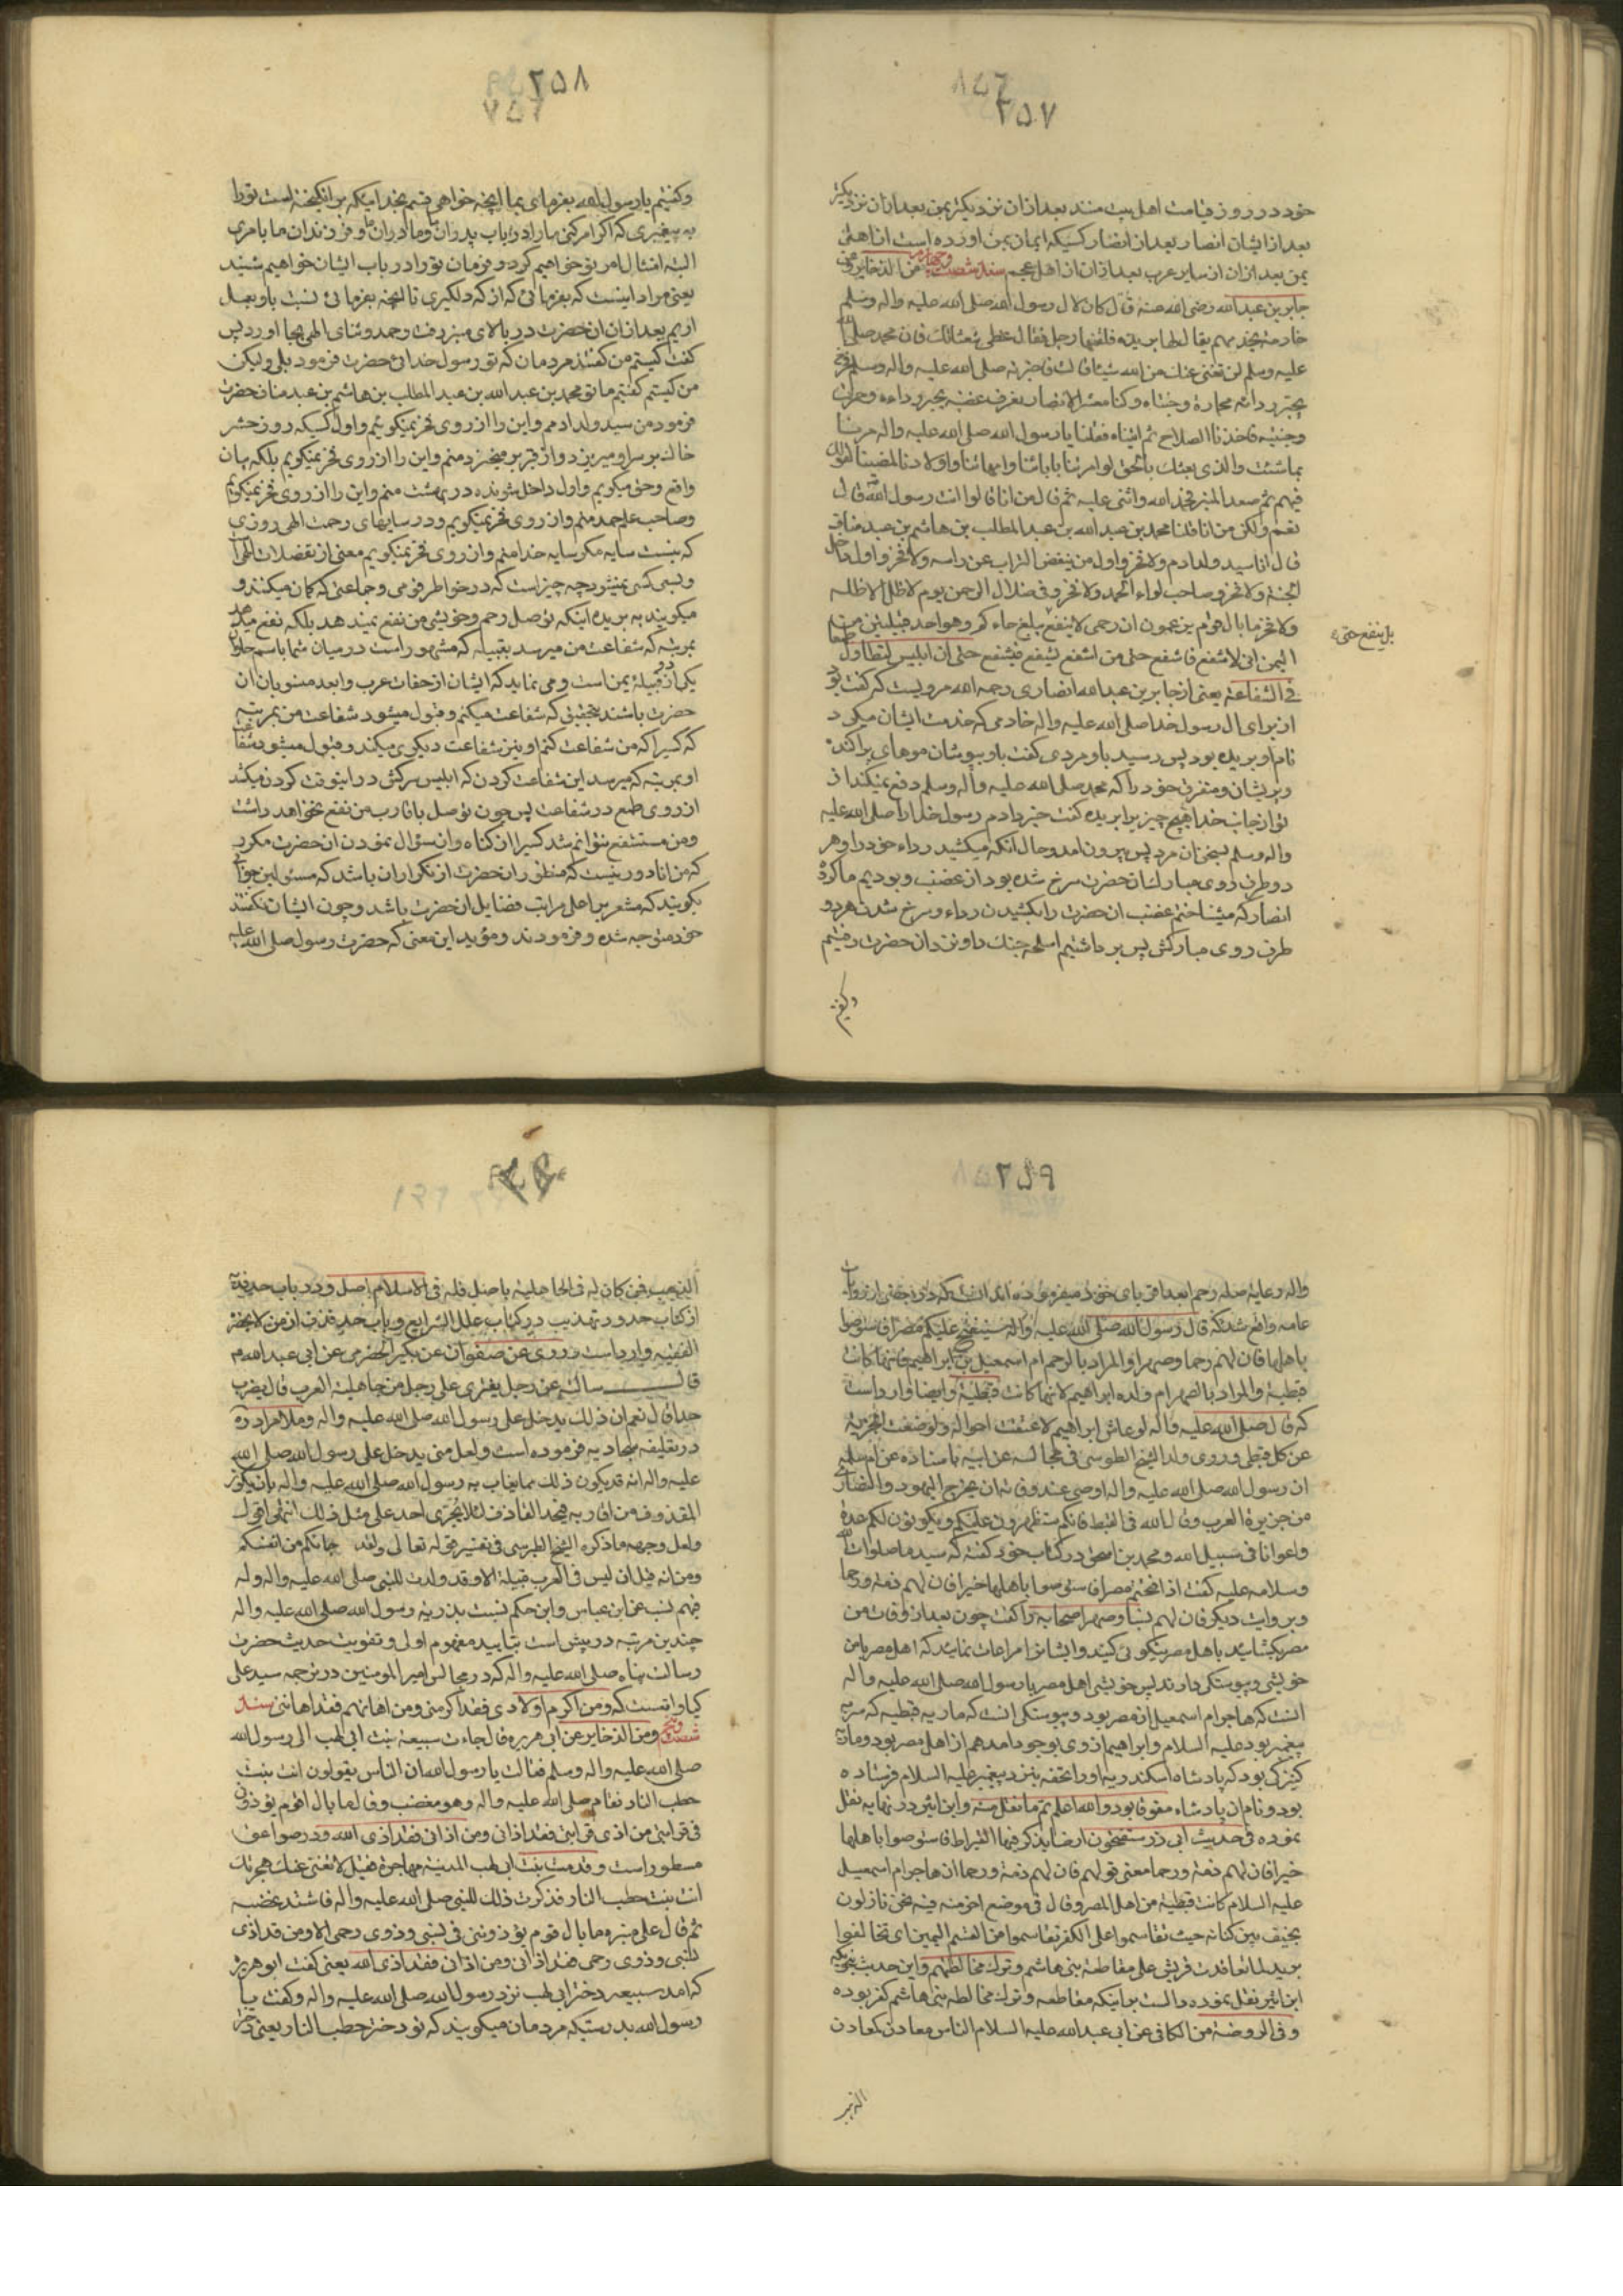 ۲۵۷
خود در روز قیامت اهل بیت منند بعد ازان نزدیکتر بمن بعد ازان نزدیکتر
بعد از ایشان انصار بعد از انصار کسیکه ایمان بمن اورده است از اهل
یمن بعد ازان از سایر عرب بعد ازان از اهل عجم سند شصت و چهارم من الذخایر وعن
جابر بن عبدالله رضی الله عنه قال کان لال رسول الله صلی الله علیه واله وسلم
خادمة تخدمهم یقال لها بریده فلقیها رجل فقال غطی شعثاتک فان محمد صلی الله
علیه وسلم لن تغنی عنک من الله شیئا قالت فاخبرته صلی الله علیه واله وسلم فخرج
یجر رداءه محمارة وجنتاه وکنا معشر الانصار نعرف غضبه بجر رداءه وحمرة
وجنتیه فاخذنا السلاح ثم اتیناه فقلنا یا رسول الله صلی الله علیه واله مرنا
بما شئت والذی بعثک بالحق لو امرتنا بابائنا وامهاتنا واولادنا لمضینا لقولک
فیهم ثم صعد المنبر فحمد الله واثنی علیه ثم قال من انا قالوا انت رسول الله قال
نعم ولکن من انا قلنا محمد بن عبدالله بن عبدالمطلب بن هاشم بن عبد مناف
قال انا سید ولد ادم ولا فخر واول من ینفض التراب عن راسه ولا فخر واول داخل
الجنة ولا فخر وصاحب لواء الحمد ولا فخر وفی ظلال الرحمن یوم لا ظل الا ظله
ولا فخر ما بال اقوام یزعمون ان رحمی لا ینفع بلغ حاء کم وهو احد قبیلتین من
بل ینفع حتی
الیمن انی لاشفع فاشفع حتی من اشفع لیشفع فیشفع حتی ان ابلیس لتطاول طمعا
فی الشفاعة یعنی از جابر بن عبدالله انصاری رحمه الله مرویست که گفت بود
از برای ال رسول خدا صلی الله علیه واله خادمی که خدمت ایشان میکرد
نام او بریده بود پس رسید باو مردی گفت باو بپوشان موهای پراکنده
وپریشان ومتفرق خود را که محمد صلی الله علیه واله وسلم دفع نمیکند از
تو از جانب خدا هیچ چیز پرا بریده گفت خبر دادم رسول خدا را صلی الله علیه
واله وسلم بسخن ان مرد پس بیرون امد وحال انکه میکشید رداء خود را وهر
دو طرف روی مبارک ان حضرت سرخ شده بود از غضب وبودیم ما کروه
انصار که میشناختیم غضب ان حضرت را بکشیدن رداء وسرخ شدن هر دو
طرف روی مبارکش پس برداشتیم اسلحه جنگ را ونزد ان حضرت رفتیم
وکفتیم
۲۵۸
وکفتیم یا رسول الله بفرمای بما انچه خواهی قسم بخدائیکه برانکیخته است تو را
به پیغمبری که اکر امر کنی ما را در باب پدران ما ومادران ما وفرزندان ما بامری
البته امتثال امر تو خواهیم کرد وفرمان تو را در باب ایشان خواهیم شنید
یعنی مراد اینست که بفرمائی که از که دلکیری تا انچه بفرمائی نسبت باو بعمل
اریم بعد ازان ان حضرت در بالای منبر رفت وحمد وثنای الهی بجا اورد پس
کفت کیستم من کفتند مردمان که تو رسول خدائی حضرت فرمود بلی ولیکن
من کیستم کفتیم ما تو محمد بن عبدالله بن عبدالمطلب بن هاشم بن عبد مناف حضرت
فرمود من سید ولد ادمم واین را از روی فخر نمیکویم واول کسیکه روز حشر
خاک بر سر او میریزد واز قبر بر میخیزد منم واین را از روی فخر نمیکویم بلکه بیان
واقع وحق میکویم واول داخل شونده در بهشت منم واین را از روی فخر نمیکویم
وصاحب علم حمد منم واز روی فخر نمیکویم ودر سایهای رحمت الهی روزی
که نیست سایه مکر سایه خدا منم واز روی فخر نمیکویم معنی از تفضلات الهی
وبسی کسی نمیشود چه چیز است که در خواطر قومی وجماعتی که کمان میکنند و
میکویند به بریده اینکه توصل رحم وخویشی من نفع نمیدهد بلکه نفع میدهد
بمرتبه که شفاعت من میرسد بقبیله که مشهور است در میان شما باسم حاء وان
یکی از دو قبیله یمن است ومی نماید که ایشان از جفات عرب وابعد منسوبان ان
حضرت باشند بتحقیق که شفاعت میکنم وقبول میشود شفاعت من بمرتبه
که کسیرا که من شفاعت کنم او نیز شفاعت دیکری میکند وقبول میشود شفاعت
او بمرتبه که میرسد این شفاعت کردن که ابلیس سرکش در انوقت کردن میکشد
از روی طمع در شفاعت پس چون توصل باقارب من نفع نخواهد داشت
ومن مستشفع نتوانم شد کسیرا از کناه وان سؤال نمودن ان حضرت مکرر
که من انا دور نیست که منظور ان حضرت از تکرار ان باشد که مسئولین جوابی
بکویند که مشعر بر اعلی مراتب فضایل ان حضرت باشد وچون ایشان نکفتند
خود متوجه شده وفرمودند ومؤید این معنی که حضرت رسول صلی الله علیه
۲۵۹
واله رعایة صله رحم ابعد اقربای خود میفرموده اند انست که در بعضی از روایات
عامه واقع شده که قال رسول الله صلی الله علیه واله سیفتح علیکم مصر فاستوصوا
باهلها فان لهم رحما وصهرا والمراد بالرحم ام اسمعیل بن ابراهیم فانها کانت
قبطیة والمراد بالصهر ام ولده ابراهیم لانها کانت قبطیة وایضا وارد است
که قال صلی الله علیه واله لو عاش ابراهیم لاعتقت اخواله ولوضعت الجزیة
عن کل قبطی وروی ولد الشیخ الطوسی فی مجالسه عن ابیه باسناده عن ام سلمه
ان رسول الله صلی الله علیه واله اوصی عند وفاته ان یخرج الیهود والنصاری
من جزیرة العرب وقال الله الله فی القبط فانکم ستظهرون علیکم ویکونون لکم عدة
واعوانا فی سبیل الله ومحمد بن اسحق در کتاب خود کفته که سید ما صلوات الله
وسلامه علیه کفت اذا فتحتم مصر فاستوصوا باهلها خیرا فان لهم ذمة ورحما
وبروایت دیکر فان لهم نسبا وصهرا صحابه را کفت چون بعد از وفات من
مصر بکشایید با اهل مصر نیکوئی کنید وایشانرا مراعات نمایید که اهل مصر با من
خویشی وپیوستکی دارند پس خویشی اهل مصر با رسول الله صلی الله علیه واله
انست که هاجر ام اسمعیل از مصر بود وپیوستکی انست که ماریه قبطیه که سریه
پیغمبر بود علیه السلام وابراهیم از وی بوجود امد هم از اهل مصر بود وماریه
کنیزکی بود که پادشاه اسکندریه او را بتحفه نزد پیغمبر علیه السلام فرستاده
بود ونام ان پادشاه مقوقس بود والله اعلم تم ما نقل منه وابن اثیر در نهایه نقل
نموده فی حدیث ابی ذر ستفتحون ارضا یذکر فیها القیراط فاستوصوا باهلها
خیرا فان لهم ذمة ورحما معنی قولهم فان لهم ذمة ورحما ان هاجر ام اسمعیل
علیه السلام کانت قبطیة من اهل المصر وقال فی موضع اخر منه فیه نحن نازلون
بخیف بنی کنانه حیث تقاسموا علی الکفر تقاسموا من القسم الیمین ای تحالفوا
یرید لما تعاقدت قریش علی مقاطعة بنی هاشم وترک مخالطتهم واین حدیث نیز که
ابن اثیر نقل نموده دالست بر اینکه مقاطعه وترک مخالطه بنی هاشم کفر بوده
وفی الروضة من الکافی عن ابی عبدالله علیه السلام الناس معادن کمعادن
الذهب
الذهب فمن کان له فی الجاهلیة اصل فله فی الاسلام اصل ودر باب حد قذف
از کتاب حدود تهذیب در کتاب علل الشرایع وباب حد قذف از من لا یحضره
الفقیه وارد است روی عن صفوان عن بکیر الحضرمی عن ابی عبدالله م
قال سالته عن رجل یفتری علی رجل من جاهلیة العرب قال یضرب
حدا قال نعم ان ذلک یدخل علی رسول الله صلی الله علیه واله وملا مراد ره
در تعلیقه سجادیه فرموده است ولعل متی یدخل علی رسول الله صلی الله
علیه واله انه قد یکون ذلک مما یعاب به رسول الله صلی الله علیه واله بان یکون
المقذوف من اقاربه فیحد القاذف لئلا یجتری احد علی مثل ذلک انتهی اقول
ولعل وجهه ما ذکره الشیخ الطبرسی فی تفسیر قوله تعالی ولقد جائکم من انفسکم
ومن انه قیل ان لیس فی العرب قبیلة الا وقد ولدت للنبی صلی الله علیه واله وله
فیهم نسب عن ابن عباس وابن حکم نسبت بذریه رسول الله صلی الله علیه واله
چندین مرتبه در پیش است بتایید مفهوم اولی وتقویت حدیث حضرت
رسالت پناه صلی الله علیه واله که در مجالس امیر المومنین در ترجمه سید علی
کیا واقعست که ومن اکرم اولادی فقد اکرمنی ومن اهانهم فقد اهاننی سند
شصت وپنجم ومن الذخایر عن ابی هریره قال جاءت سبیعة بنت ابی لهب الی رسول الله
صلی الله علیه واله وسلم فقالت یا رسول الله ان الناس یقولون انت بنت
حطب النار فقام صلی الله علیه واله وهو مغضب وقال ما بال اقوام یؤذونی
فی قرابتی من اذی قرابتی فقد اذانی ومن اذانی فقد اذی الله ودر صواعق
مسطور است وقدمت بنت ابی لهب المدینة مهاجرة فقیل لا تغنی عنک هجرتک
انت بنت حطب النار فذکرت ذلک للنبی صلی الله علیه واله فاشتد غضبه
ثم قال علی منبره ما بال قوم یؤذوننی فی نسبی وذوی رحمی الا ومن قد اذی
نسبی وذوی رحمی فقد اذانی ومن اذانی فقد اذی الله یعنی کفت ابو هریره
که امد سبیعه دختر ابی لهب نزد رسول الله صلی الله علیه واله وکفت یا
رسول الله بدرستیکه مردمان میکویند که تو دختر حطب النار یعنی دختر